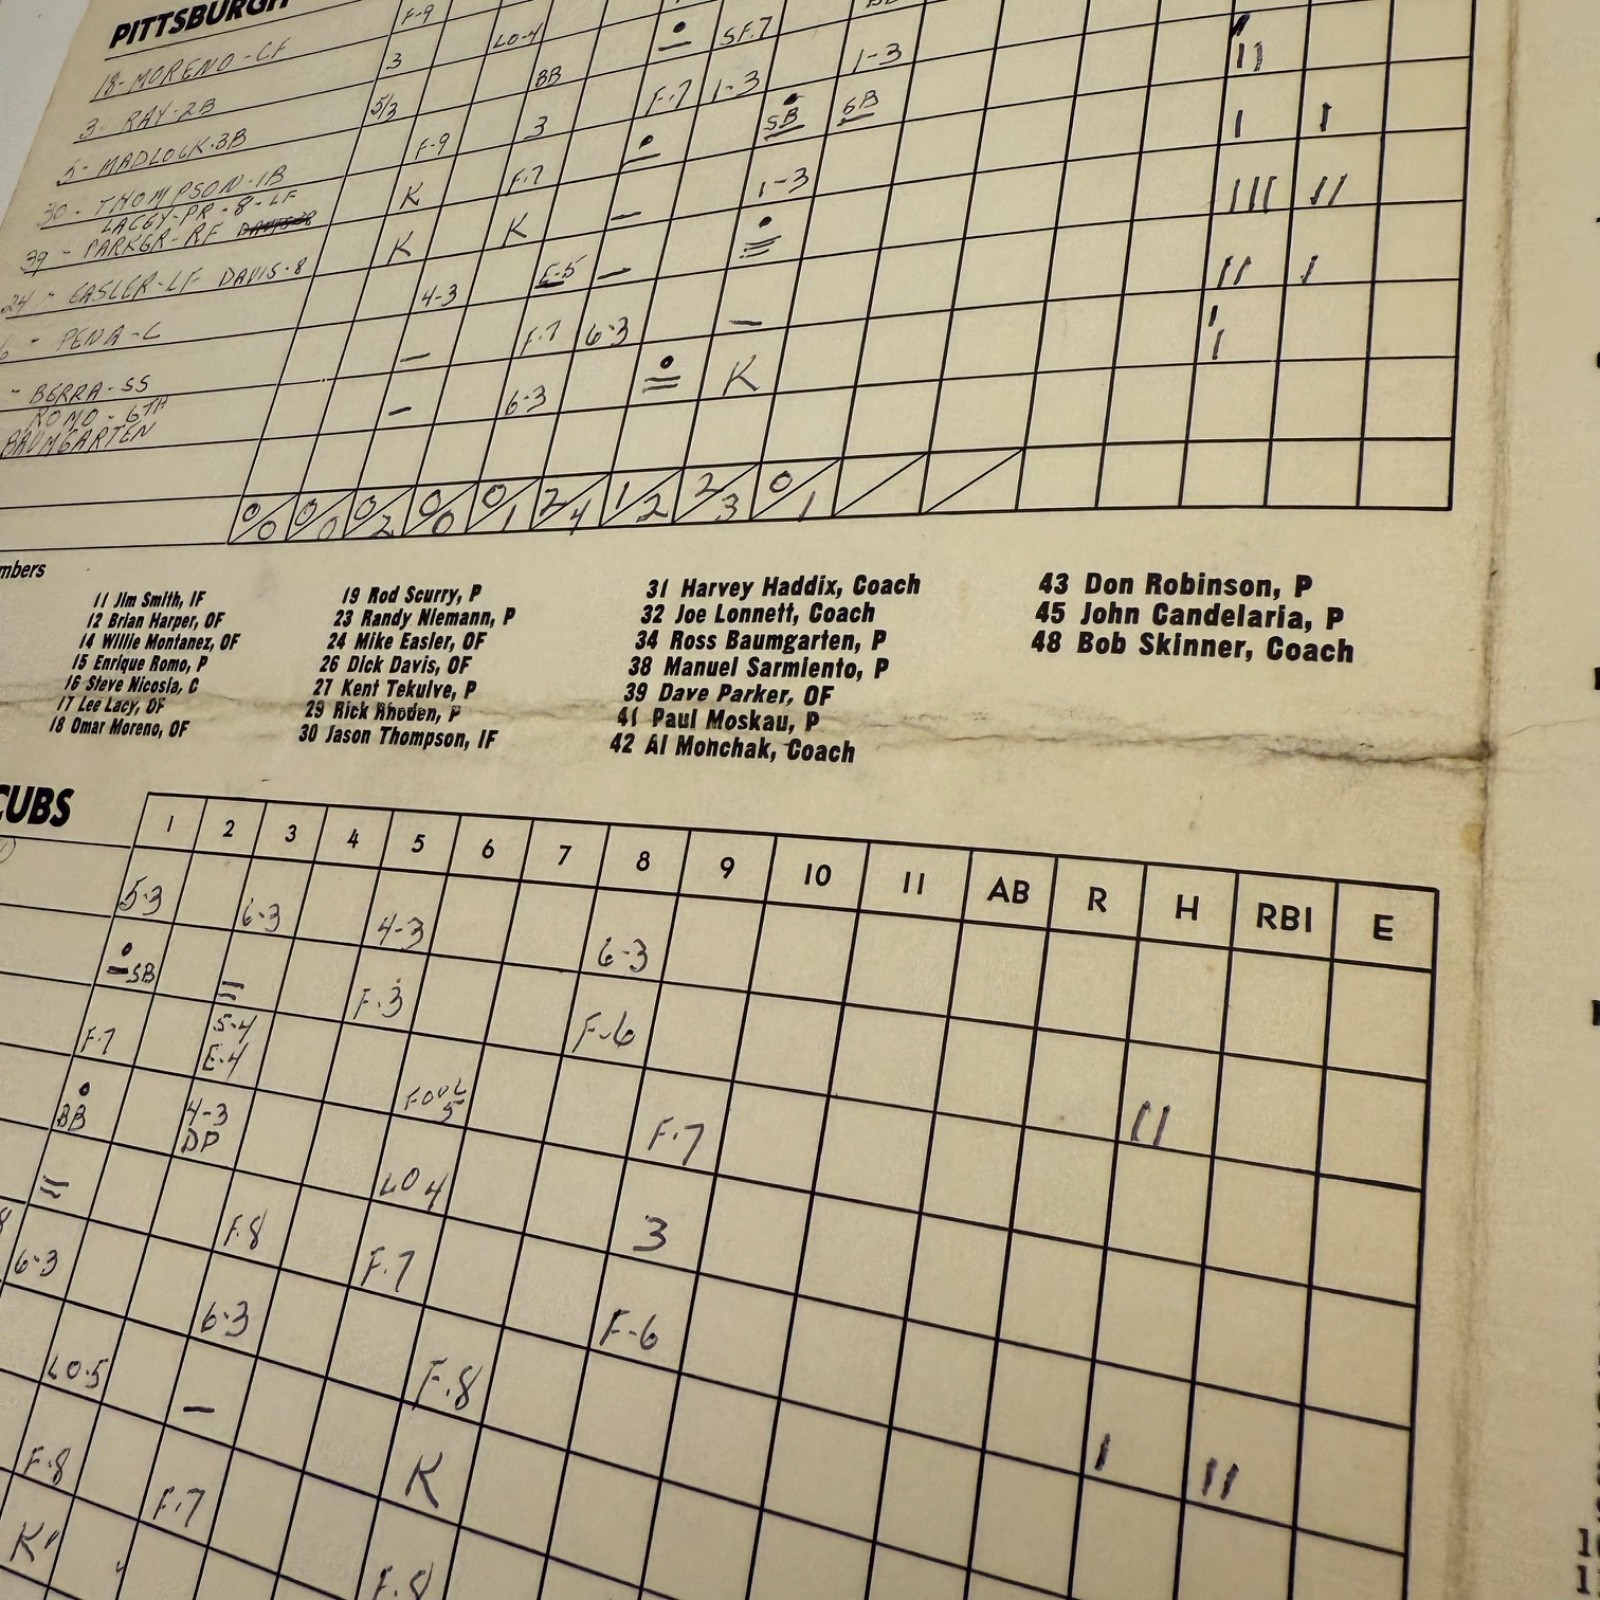 PITTSBURGH
18- MORENO-CF F-9 LO-4 SF.7
3- RAY-2B 3 BB F.7 1-3 1-3
5- MADLOCK.3B 5/3 3 SB SB
30- THOMPSON-1B F-9 F.7 1-3
LACEY-PR-8-LF
39- PARKER-RF K K
24- EASLER-LF DAVIS-8 K E-5
PENA-C 4-3 F.7 6-3
- BERRA-SS K
ROMO-6TH 6-3
BAUMGARTEN
0/0 0/0 0/2 0/0 0/1 2/4 1/2 2/3 0/1
mbers
11 Jim Smith, IF
12 Brian Harper, OF
14 Willie Montanez, OF
15 Enrique Romo, P
16 Steve Nicosia, C
17 Lee Lacy, OF
18 Omar Moreno, OF
19 Rod Scurry, P
23 Randy Niemann, P
24 Mike Easler, OF
26 Dick Davis, OF
27 Kent Tekulve, P
29 Rick Rhoden, P
30 Jason Thompson, IF
31 Harvey Haddix, Coach
32 Joe Lonnett, Coach
34 Ross Baumgarten, P
38 Manuel Sarmiento, P
39 Dave Parker, OF
41 Paul Moskau, P
42 Al Monchak, Coach
43 Don Robinson, P
45 John Candelaria, P
48 Bob Skinner, Coach
CUBS 1 2 3 4 5 6 7 8 9 10 11 AB R H RBI E
5-3 6-3 4-3 6-3
SB F.3 F-6
F.7 5-4 E-4 FOUL 5 F.7
BB 4-3 DP LO 4 3
F.8 F.7 F-6
6-3 6-3 F.8
LO.5 K
F.8 F.7 F.8
K